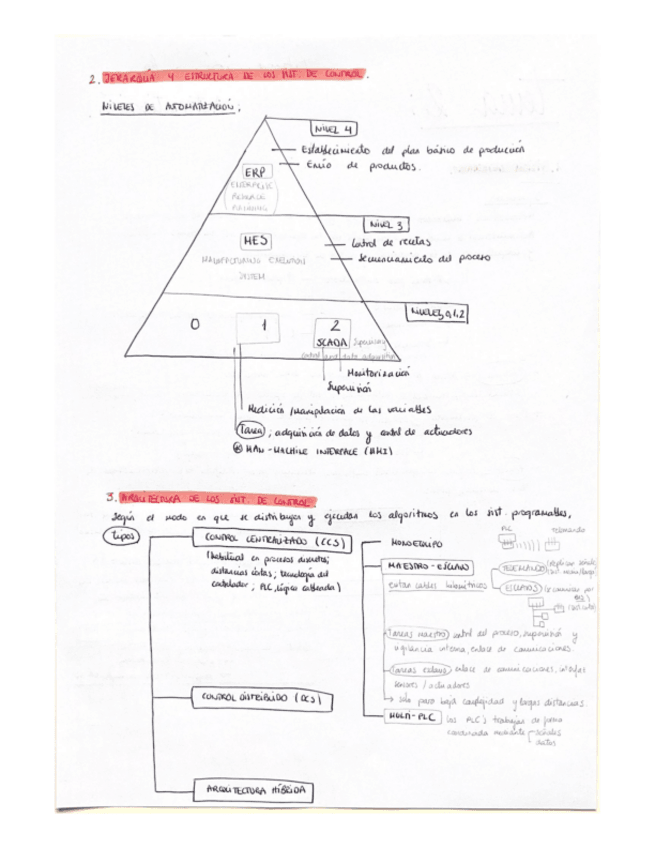 2. JERARQUÍA Y ESTRUCTURA DE LOS SIST. DE CONTROL.
NIVELES DE AUTOMATIZACIÓN:
NIVEL 4
Establecimiento del plan básico de producción
Envío de productos.
ERP
ENTERPRISE
RESOURCE
PLANNING
NIVEL 3
MES
Control de recetas
MANUFACTURING EXECUTION
Secuenciamiento del proceso
SYSTEM
NIVELES 0,1,2
0 1 2
SCADA Supervisory
control and data adquisition
Monitorización
Supervisión
Medición /manipulación de las variables
Tarea; adquisición de datos y control de actuadores
MAN-MACHINE INTERFACE (HMI)
3. ARQUITECTURA DE LOS SIST. DE CONTROL.
Según el modo en que se distribuyen y ejecutan los algoritmos en los sist. programables,
tipos
CONTROL CENTRALIZADO (CCS)
(habitual en procesos discretos;
distancias cortas; tecnología del
controlador; PLC, lógica cableada)
MONOEQUIPO
PLC telemando
MAESTRO-ESCLAVO
evitar cables kilométricos
TELEMANDO (replicar señales
ESCLAVOS (se comunican por
BUS)
Tareas maestro control del proceso, supervisión y
vigilancia interna, enlace de comunicaciones.
Tareas esclavo enlace de comunicaciones, interfaz
sensores / actuadores
→ solo para baja complejidad y largas distancias.
MULTI-PLC los PLC's trabajan de forma
coordinada mediante señales
datos
CONTROL DISTRIBUIDO (DCS)
ARQUITECTURA HÍBRIDA